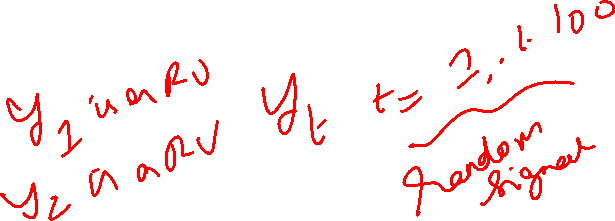 y1 is a RV
y2 is a RV
yt t = 1, .. 100
random
signal